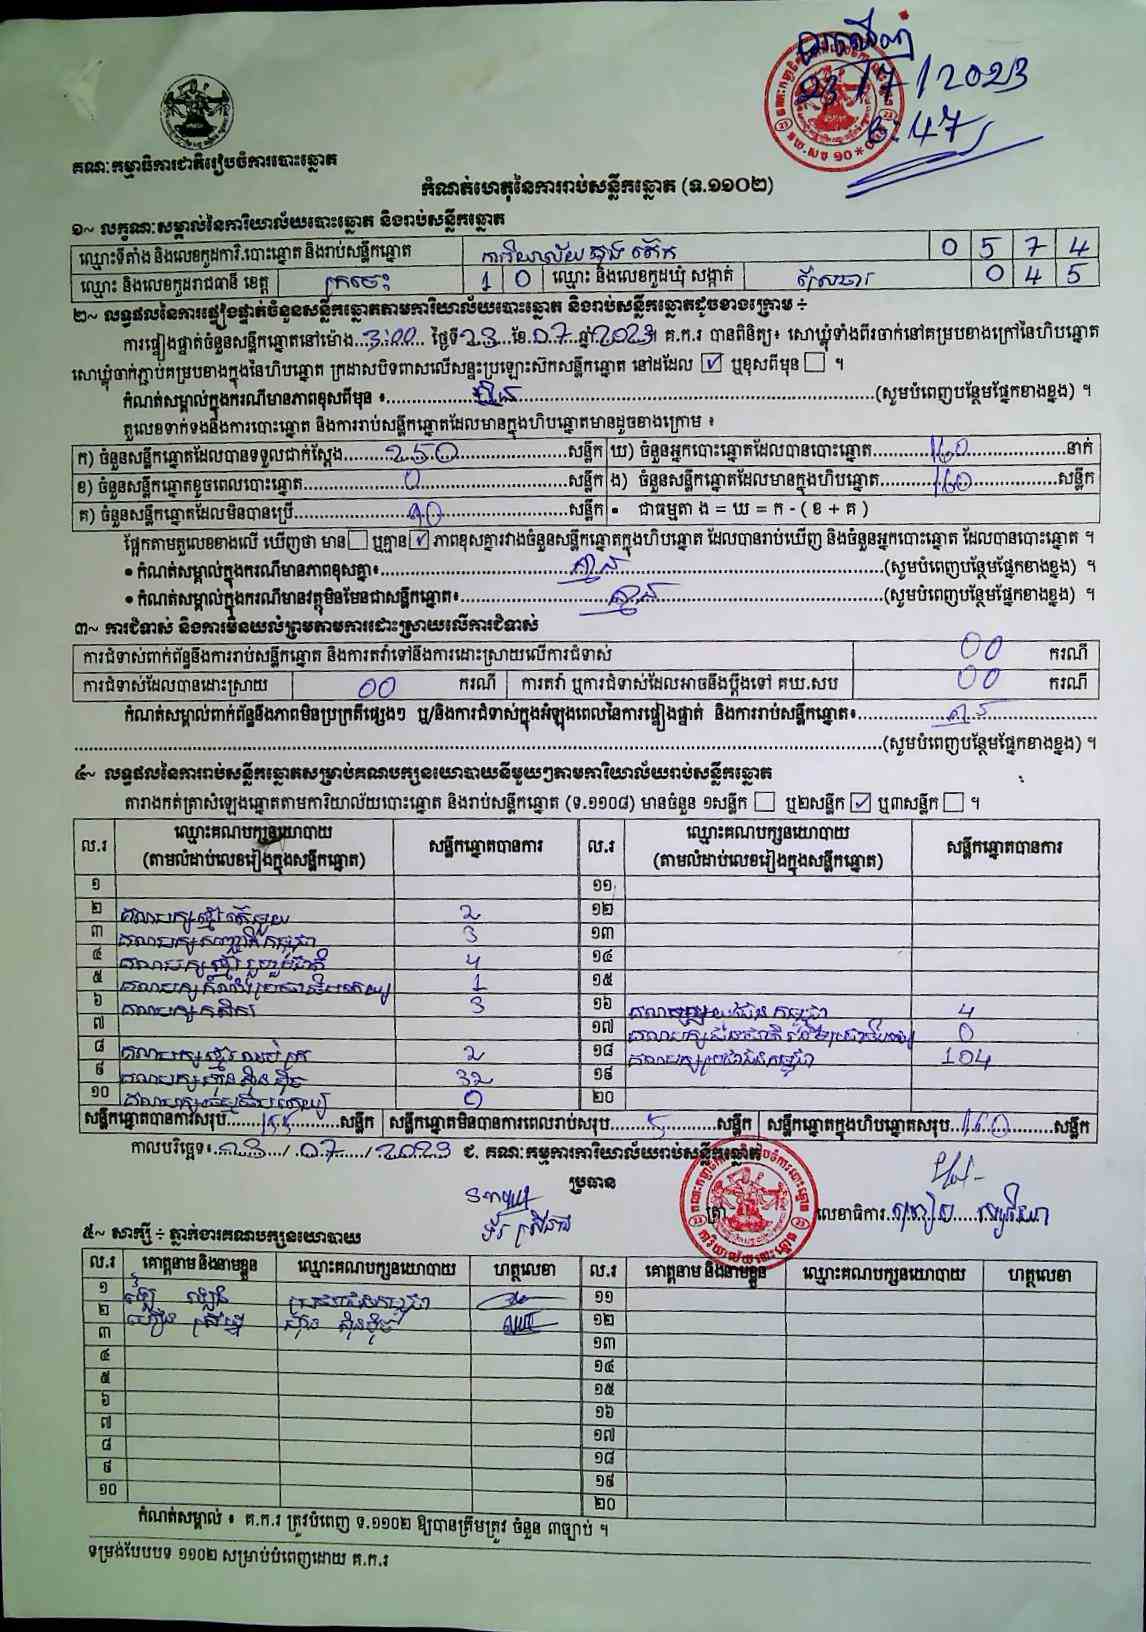 23/7/2023
6:47
គណៈកម្មាធិការជាតិរៀបចំការបោះឆ្នោត
កំណត់ហេតុនៃការរាប់សន្លឹកឆ្នោត (ទ.១១០២)
១~ លក្ខណៈសម្គាល់នៃការិយាល័យបោះឆ្នោត និងរាប់សន្លឹកឆ្នោត
ឈ្មោះទីតាំង និងលេខកូដការិ.បោះឆ្នោត និងរាប់សន្លឹកឆ្នោត 0 5 7 4
ឈ្មោះ និងលេខកូដរាជធានី ខេត្ត ក្រចេះ 1 0 ឈ្មោះ និងលេខកូដឃុំ សង្កាត់ 0 4 5
២~ លទ្ធផលនៃការផ្ទៀងផ្ទាត់ចំនួនសន្លឹកឆ្នោតតាមការិយាល័យបោះឆ្នោត និងរាប់សន្លឹកឆ្នោតដូចខាងក្រោម ÷
ការផ្ទៀងផ្ទាត់ចំនួនសន្លឹកឆ្នោតនៅម៉ោង...3:00... ថ្ងៃទី.23..ខែ.07..ឆ្នាំ.2023 គ.ក.រ បានពិនិត្យ៖ សោឃ្លុំទាំងពីរចាក់នៅគម្របខាងក្រៅនៃហិបឆ្នោត
សោឃ្លុំចាក់ភ្ជាប់គម្របខាងក្នុងនៃហិបឆ្នោត ក្រដាសបិទពាសលើសន្ទះប្រឡោះស៊កសន្លឹកឆ្នោត នៅដដែល ☑ ឬខុសពីមុន ☐ ។
កំណត់សម្គាល់ក្នុងករណីមានភាពខុសពីមុន ៖...គ្មាន...(សូមបំពេញបន្ថែមផ្នែកខាងខ្នង) ។
តួលេខទាក់ទងនឹងការបោះឆ្នោត និងការរាប់សន្លឹកឆ្នោតដែលមានក្នុងហិបឆ្នោតមានដូចខាងក្រោម ៖
ក) ចំនួនសន្លឹកឆ្នោតដែលបានទទួលជាក់ស្តែង...250...សន្លឹក ឃ) ចំនួនអ្នកបោះឆ្នោតដែលបានបោះឆ្នោត...160...នាក់
ខ) ចំនួនសន្លឹកឆ្នោតខូចពេលបោះឆ្នោត...0...សន្លឹក ង) ចំនួនសន្លឹកឆ្នោតដែលមានក្នុងហិបឆ្នោត...160...សន្លឹក
គ) ចំនួនសន្លឹកឆ្នោតដែលមិនបានប្រើ...90...សន្លឹក • ជាធម្មតា ង = ឃ = ក - ( ខ + គ )
ផ្អែកតាមតួលេខខាងលើ ឃើញថា មាន ☐ ឬគ្មាន ☑ ភាពខុសគ្នារវាងចំនួនសន្លឹកឆ្នោតក្នុងហិបឆ្នោត ដែលបានរាប់ឃើញ និងចំនួនអ្នកបោះឆ្នោត ដែលបានបោះឆ្នោត ។
• កំណត់សម្គាល់ក្នុងករណីមានភាពខុសគ្នា៖...គ្មាន...(សូមបំពេញបន្ថែមផ្នែកខាងខ្នង) ។
• កំណត់សម្គាល់ក្នុងករណីមានវត្ថុមិនមែនជាសន្លឹកឆ្នោត៖...គ្មាន...(សូមបំពេញបន្ថែមផ្នែកខាងខ្នង) ។
៣~ ការជំទាស់ និងការមិនយល់ព្រមតាមការដោះស្រាយលើការជំទាស់
ការជំទាស់ពាក់ព័ន្ធនឹងការរាប់សន្លឹកឆ្នោត និងការតវ៉ាទៅនឹងការដោះស្រាយលើការជំទាស់ 00 ករណី
ការជំទាស់ដែលបានដោះស្រាយ 00 ករណី ការតវ៉ា ឬការជំទាស់ដែលអាចនឹងប្តឹងទៅ គឃ.សប 00 ករណី
កំណត់សម្គាល់ពាក់ព័ន្ធនឹងភាពមិនប្រក្រតីផ្សេងៗ ឬ/និងការជំទាស់ក្នុងអំឡុងពេលនៃការផ្ទៀងផ្ទាត់ និងការរាប់សន្លឹកឆ្នោត៖...គ្មាន...
(សូមបំពេញបន្ថែមផ្នែកខាងខ្នង) ។
៤~ លទ្ធផលនៃការរាប់សន្លឹកឆ្នោតសម្រាប់គណបក្សនយោបាយនីមួយៗតាមការិយាល័យរាប់សន្លឹកឆ្នោត
តារាងកត់ត្រាសំឡេងឆ្នោតតាមការិយាល័យបោះឆ្នោត និងរាប់សន្លឹកឆ្នោត (ទ.១១០៨) មានចំនួន ១សន្លឹក ☐ ឬ២សន្លឹក ☑ ឬ៣សន្លឹក ☐ ។
ល.រ ឈ្មោះគណបក្សនយោបាយ (តាមលំដាប់លេខរៀងក្នុងសន្លឹកឆ្នោត) សន្លឹកឆ្នោតបានការ ល.រ ឈ្មោះគណបក្សនយោបាយ (តាមលំដាប់លេខរៀងក្នុងសន្លឹកឆ្នោត) សន្លឹកឆ្នោតបានការ
១ ១១
២ គណបក្សខ្មែរតែមួយ 2 ១២
៣ គណបក្សសញ្ជាតិកម្ពុជា 3 ១៣
៤ គណបក្សខ្មែររួបរួមជាតិ 4 ១៤
៥ គណបក្សកំលាំងប្រជាធិបតេយ្យ 1 ១៥
៦ គណបក្សកសិករ 3 ១៦ 4
៧ ១៧ 0
៨ 2 ១៨ គណបក្សប្រជាជនកម្ពុជា 104
៩ គណបក្សហ្វ៊ុនស៊ិនប៉ិច 32 ១៩
១០ គណបក្សធម្មាធិបតេយ្យ 0 ២០
សន្លឹកឆ្នោតបានការសរុប...155...សន្លឹក សន្លឹកឆ្នោតមិនបានការពេលរាប់សរុប...5...សន្លឹក សន្លឹកឆ្នោតក្នុងហិបឆ្នោតសរុប...160...សន្លឹក
កាលបរិច្ឆេទ៖..23../..07../..2023 ជ. គណៈកម្មការការិយាល័យរាប់សន្លឹកឆ្នោត
ប្រធាន
ត្រា លេខាធិការ
៥~ សាក្សី ÷ ភ្នាក់ងារគណបក្សនយោបាយ
ល.រ គោត្តនាម និងនាមខ្លួន ឈ្មោះគណបក្សនយោបាយ ហត្ថលេខា ល.រ គោត្តនាម និងនាមខ្លួន ឈ្មោះគណបក្សនយោបាយ ហត្ថលេខា
១ ប្រជាជនកម្ពុជា ១១
២ ហ្វ៊ុន ស៊ិនប៉ិច ១២
៣ ១៣
៤ ១៤
៥ ១៥
៦ ១៦
៧ ១៧
៨ ១៨
៩ ១៩
១០ ២០
កំណត់សម្គាល់ ៖ គ.ក.រ ត្រូវបំពេញ ទ.១១០២ ឱ្យបានត្រឹមត្រូវ ចំនួន ៣ច្បាប់ ។
ទម្រង់បែបបទ ១១០២ សម្រាប់បំពេញដោយ គ.ក.រ